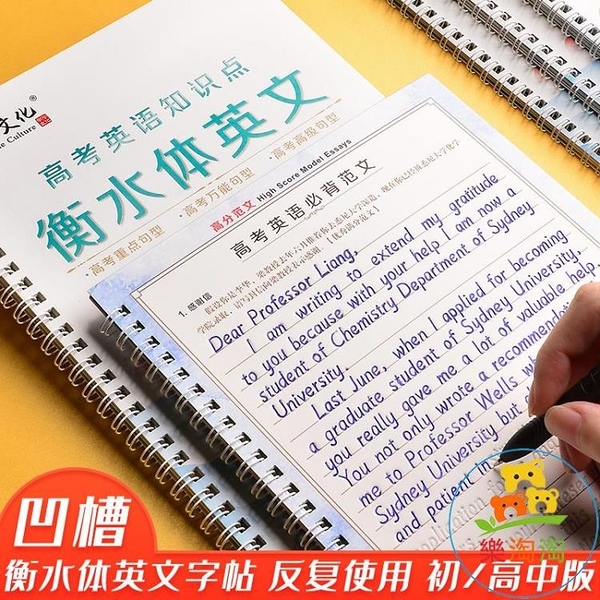 文化®
高考英语知识点
衡水体英文
·高考重点句型 ·高考万能句型 ·高考高级句型
高分范文 High Score Model Essays
高考英语必背范文
1. 感谢信
Dear Professor Liang,
I am writing to extend my gratitude
to you because with your help I am now a
student of Chemistry Department of Sydney
University.
Last June, when I applied for becoming
a graduate student of Sydney University,
you really gave me a lot of valuable help.
You not only wrote a recommendation
me to Professor Wells
Sydney University but
and patient in
樂淘淘
凹槽
衡水体英文字帖 反复使用 初/高中版